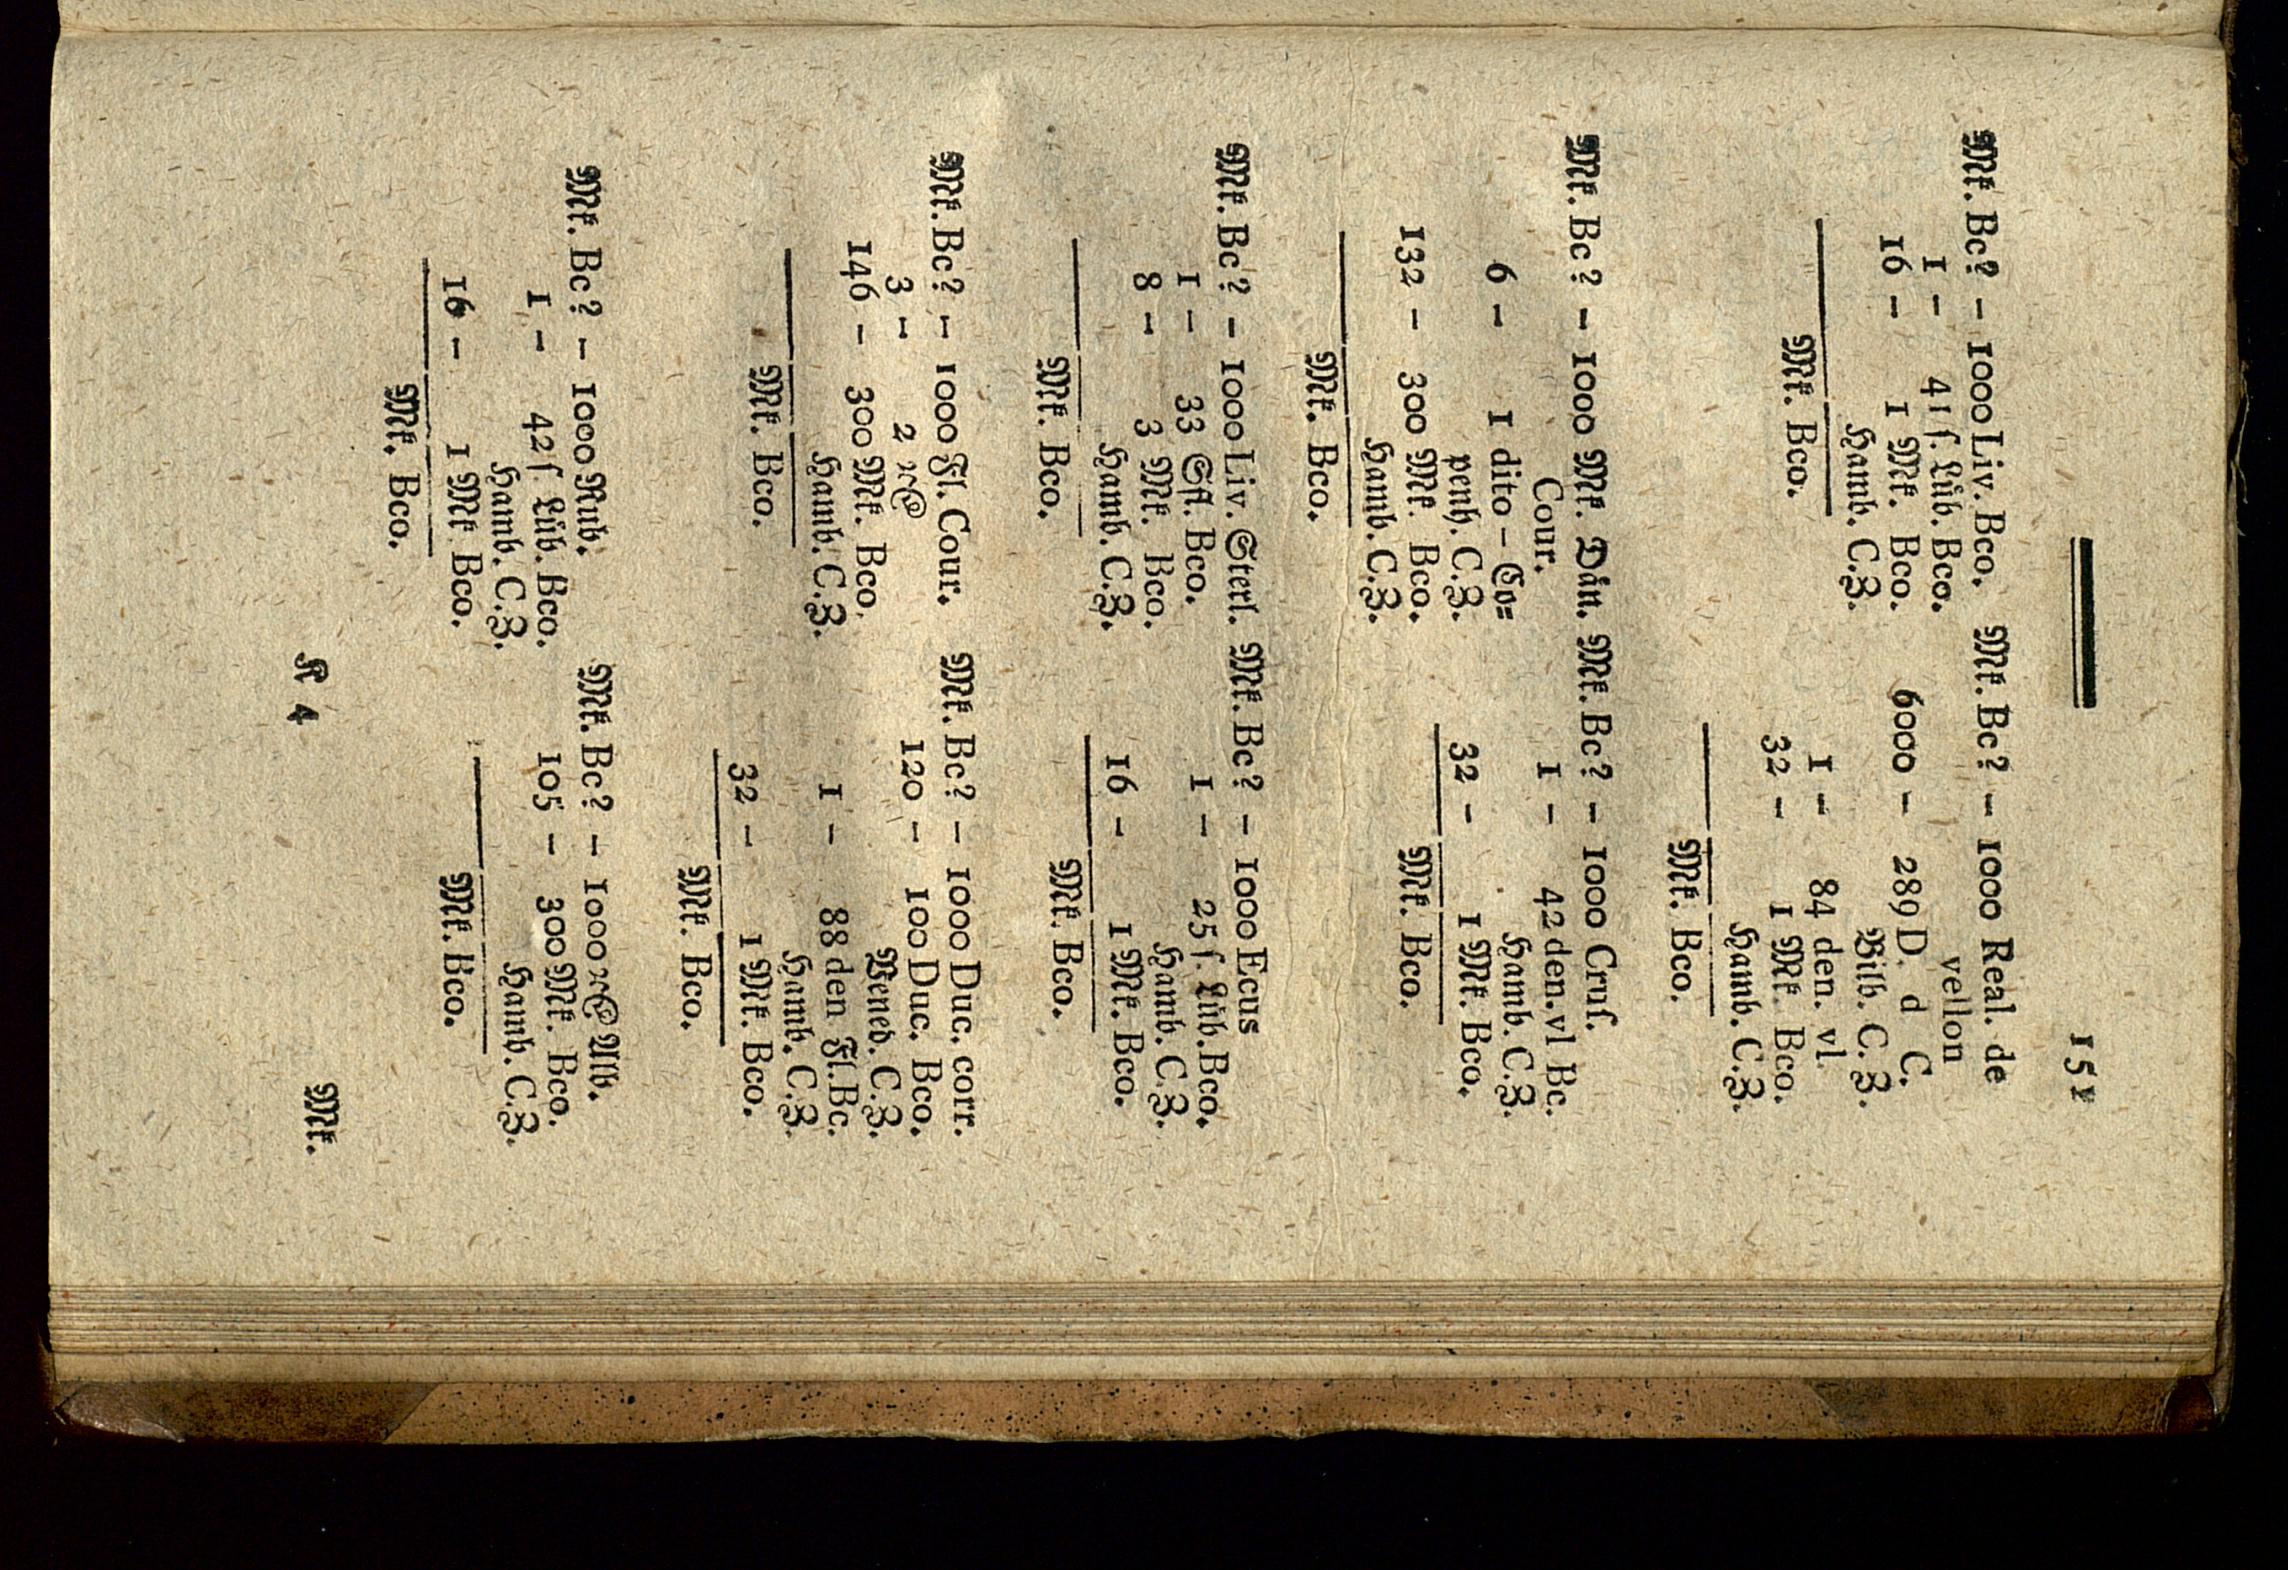 151
Mk. Bc? - 1000 Liv. Bco.
1 - 41 ſ. Lüb. Bco.
16 - 1 Mk. Bco.
Hamb. C. Z.
Mk. Bco.
Mk. Bc? - 1000 Real. de
vellon
6000 - 289 D. d C.
Bilb. C. Z.
1 - 84 den. vl.
32 - 1 Mk. Bco.
Hamb. C. Z.
Mk. Bco.
Mk. Bc? - 1000 Mk. Dän.
Cour.
6 - 1 dito - Co=
penh. C. Z.
132 - 300 Mk. Bco.
Hamb. C. Z.
Mk. Bco.
Mk. Bc? - 1000 Cruſ.
1 - 42 den. vl Bc.
Hamb. C. Z.
32 - 1 Mk. Bco.
Mk. Bco.
Mk. Bc? - 1000 Liv. Sterl.
1 - 33 Sſl. Bco.
8 - 3 Mk. Bco.
Hamb. C. Z.
Mk. Bco.
Mk. Bc? - 1000 Ecus
1 - 25 ſ. Lüb. Bco.
Hamb. C. Z.
16 - 1 Mk. Bco.
Mk. Bco.
Mk. Bc? - 1000 Fl. Cour.
3 - 2
146 - 300 Mk. Bco.
Hamb. C. Z.
Mk. Bco.
Mk. Bc? - 1000 Duc. corr.
120 - 100 Duc. Bco.
Vened. C. Z.
1 - 88 den Fl. Bc.
Hamb. C. Z.
32 - 1 Mk. Bco.
Mk. Bco.
Mk. Bc? - 1000 Rub.
1 - 42 ſ Lüb. Bco.
Hamb. C. Z.
16 - 1 Mk Bco.
Mk. Bco.
Mk. Bc? - 1000 Alb.
105 - 300 Mk. Bco.
Hamb. C. Z.
Mk. Bco.
K 4
Mk.